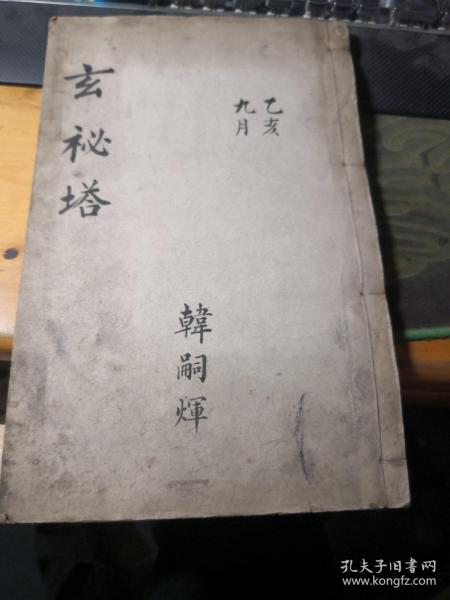 玄祕塔
乙亥
九月
韓嗣煇
孔夫子旧书网
www.kongfz.com